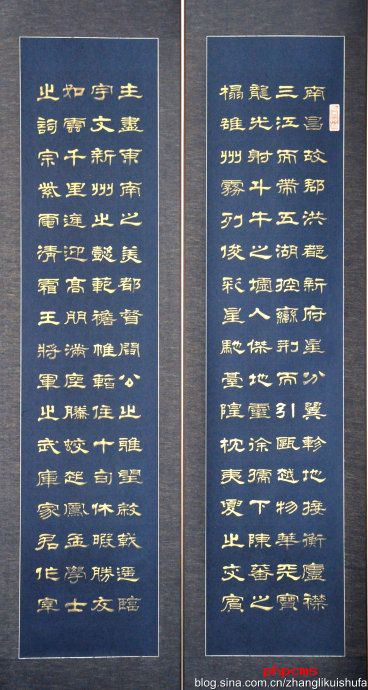 南昌故郡洪都新府星分翼軫地接衡廬襟
三江而帶五湖控蠻荊而引甌越物華天寶
龍光射斗牛之墟人傑地靈徐孺下陳蕃之
榻雄州霧列俊彩星馳臺隍枕夷夏之交賓
主盡東南之美都督閻公之雅望棨戟遙臨
宇文新州之懿範襜帷暫住十旬休暇勝友
如雲千里逢迎高朋滿座騰蛟起鳳孟學士
之詞宗紫電清霜王將軍之武庫家君作宰
phpcms
blog.sina.com.cn/zhanglikuishufa